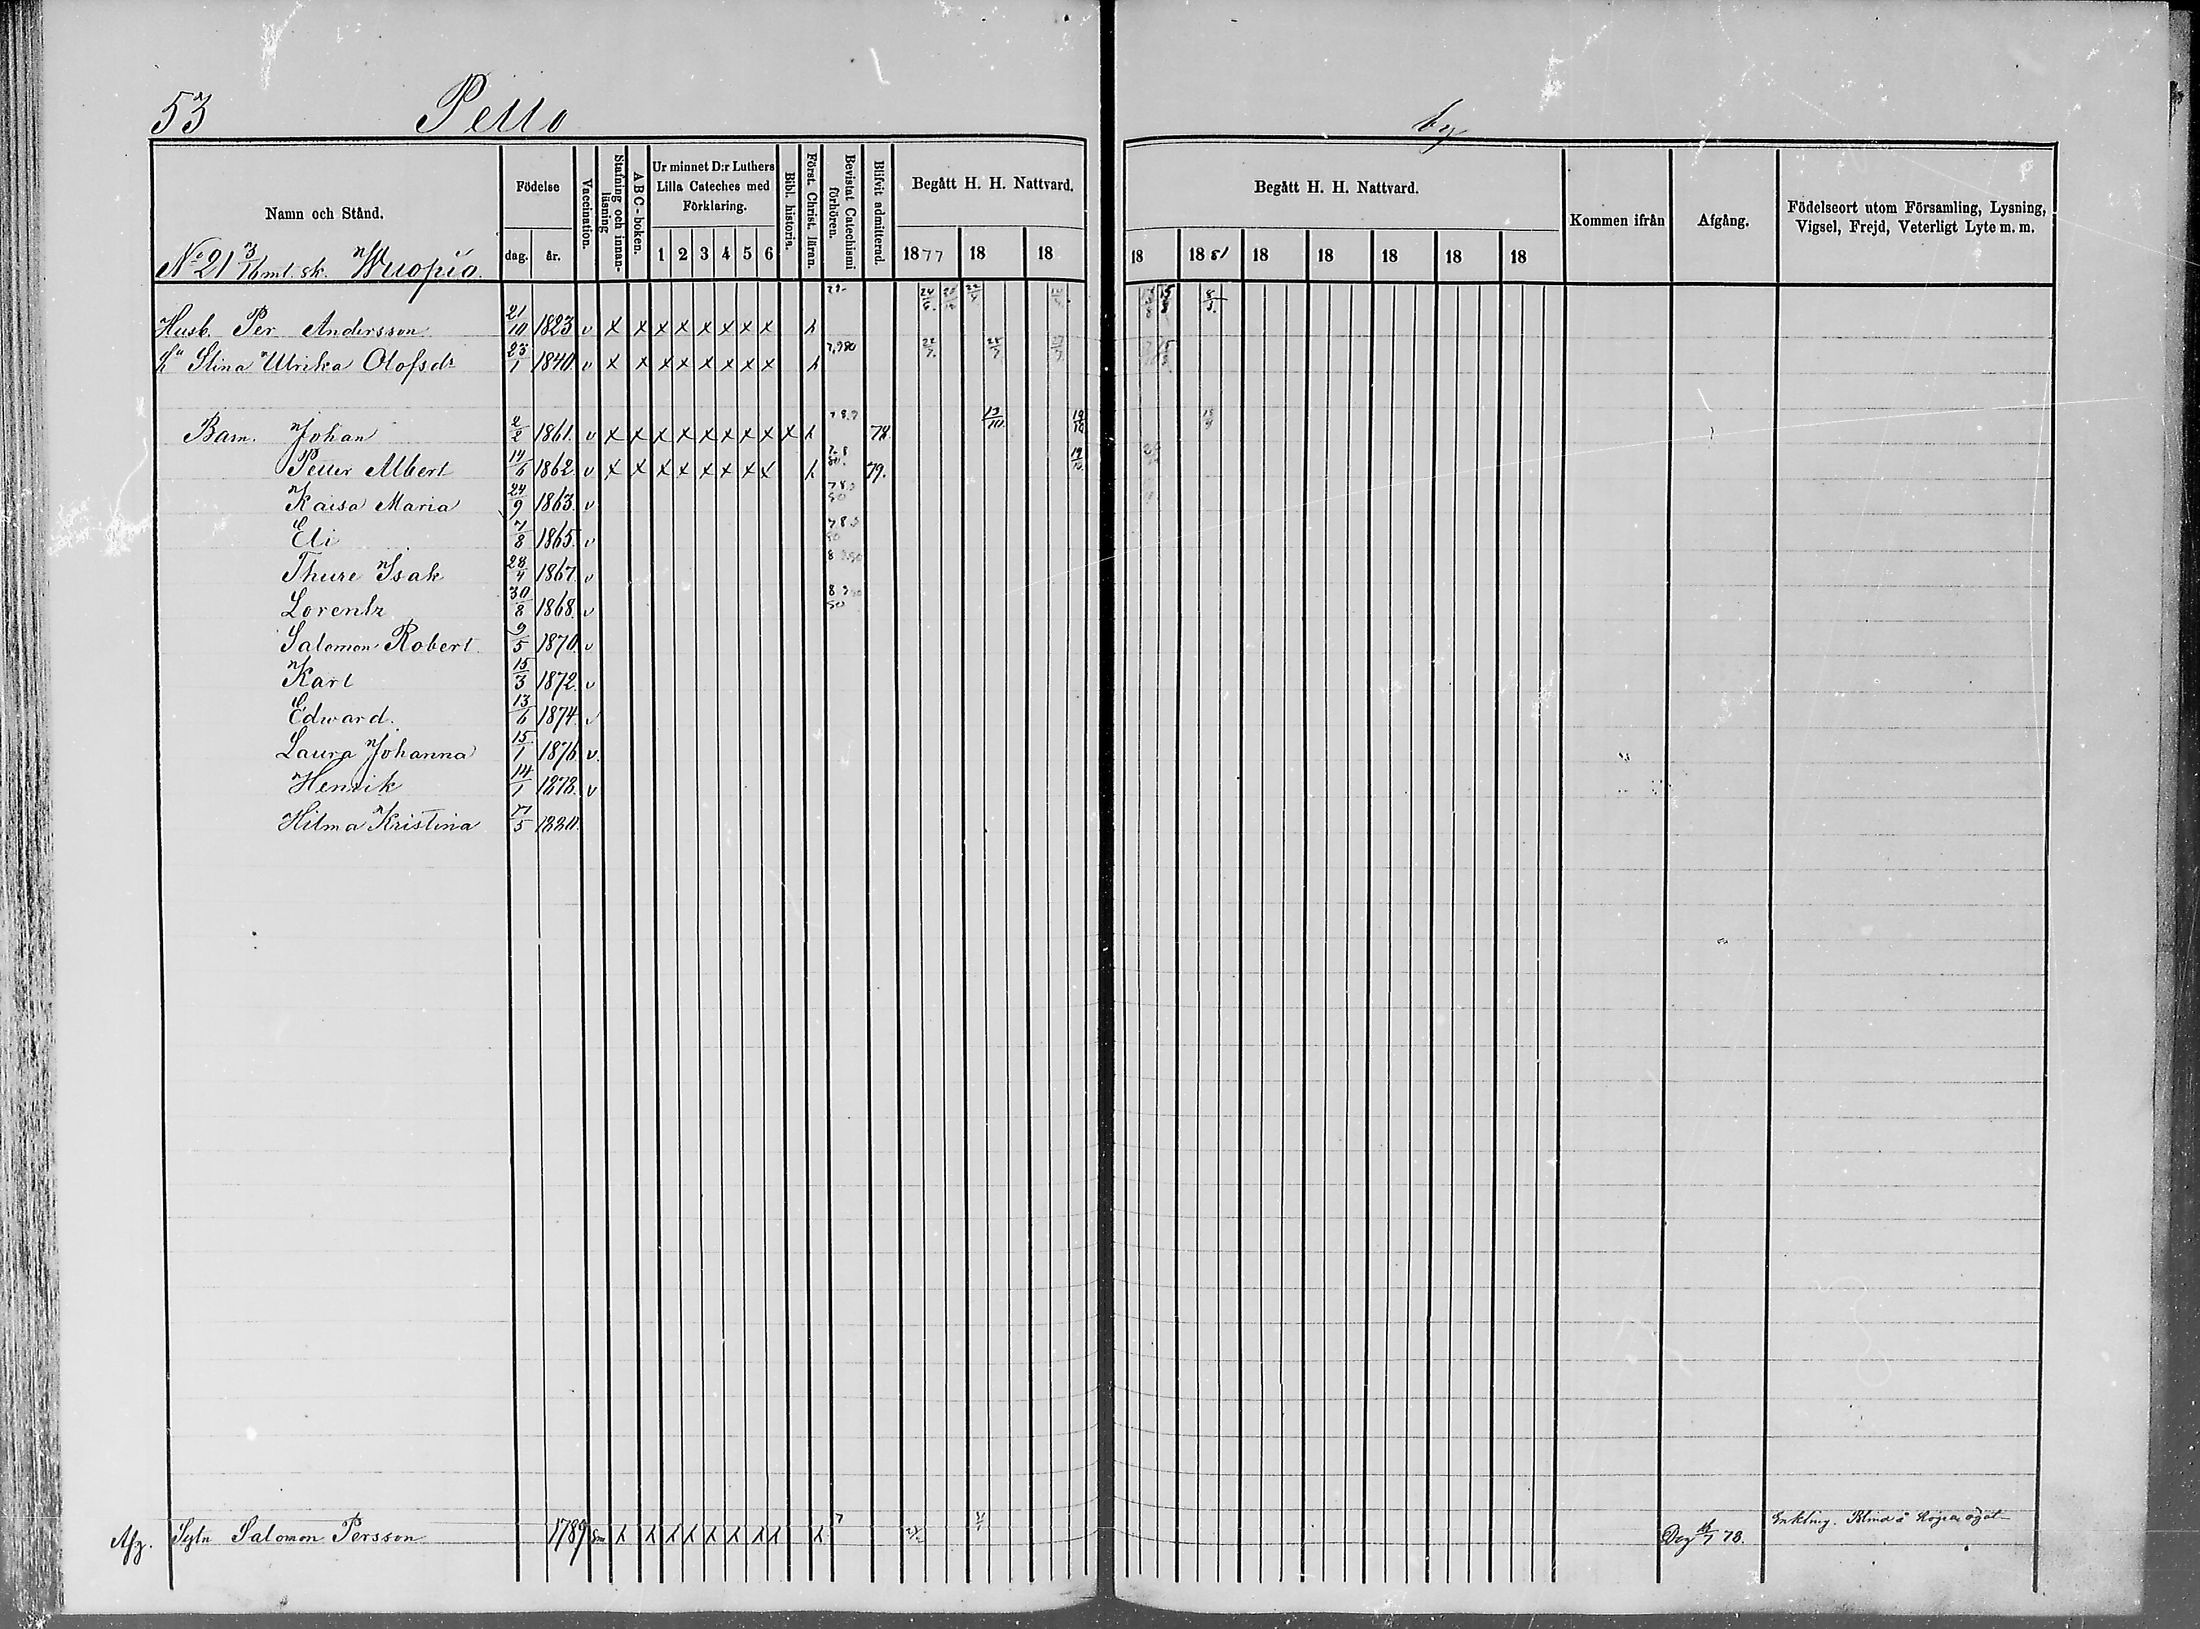 53 Pello by
Namn och Stånd.
Födelse
dag. år.
Vaccination.
Stafning och innanläsning
ABC-boken.
Ur minnet D:r Luthers Lilla Cateches med Förklaring.
1 2 3 4 5 6
Bibl. historia.
Först. Christ. läran.
Bevistat Catechismi förhören.
Blifvit admitterad.
Begått H. H. Nattvard.
1877 18 18
Begått H. H. Nattvard.
18 1881 18 18 18 18 18
Kommen ifrån
Afgång.
Födelseort utom Församling, Lysning, Vigsel, Frejd, Veterligt Lyte m. m.
No 21 3/16 mt. sk. Wuopio.
Husb. Per Andersson 21/10 1823 v x x x x x x x x h
h:u Stina Ulrika Olofsdr 23/1 1840. v x x x x x x x x h 7,980
Barn. Johan 2/2 1861. v x x x x x x x x x h 789 78. 13/10
Petter Albert 14/6 1862. v x x x x x x x x h 79. 19/10
Kaisa Maria 24/9 1863. v
Eli 7/8 1865. v
Thure Isak 28/4 1867. v
Lorentz 30/8 1868. v
Salomon Robert. 9/5 1870. v
Karl 15/3 1872. v
Edward. 13/6 1874. v
Laura Johanna 15/1 1876. v.
Henrik 14/1 1878. v
Hilma Kristina 17/5 1880.
Afg. Sytn Salomon Persson 1789 h h h h h h h h h 7 Enkling. Blind å högra ögat